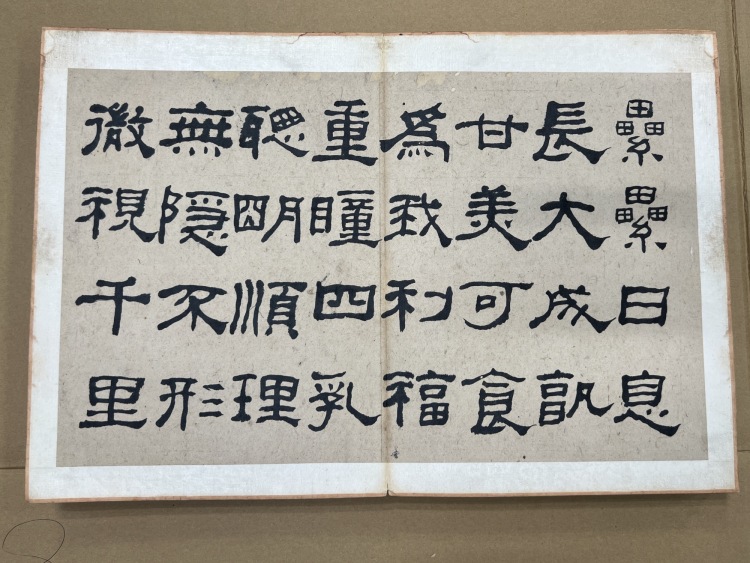 纍纍日息
長大成孰
甘美可食
為我利福
重瞳四乳
聰明順理
無隱不形
微視千里